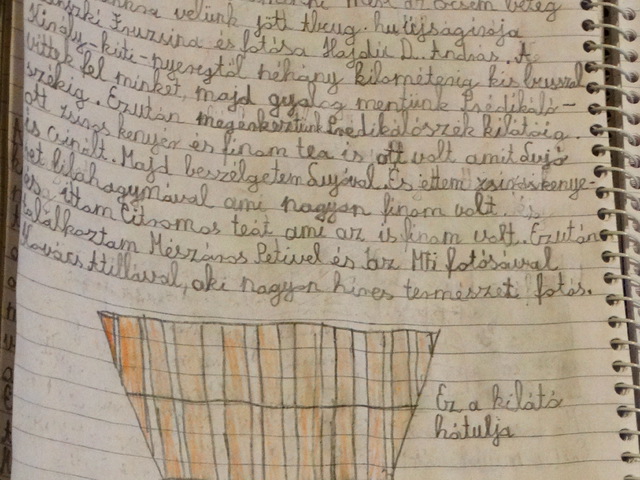 velünk jött Abcug.hu újságírója
Fruzsina és fotósa Hajdú D. András. A
Király-kúti-nyeregtől néhány kilométerig kis busszal
vittek fel minket, majd gyalog mentünk Prédikáló-
székig. Ezután megérkeztünk Prédikálószék kilátóig.
ott zsíros kenyér és finom tea is ott volt amit Sujó
is csinált. Majd beszélgetem Sujóval. És ettem zsíros kenye-
ret lilahagymával ami nagyon finom volt. és
és ittam Citromos teát ami az is finom volt. Ezután
találkoztam Mészáros Petivel és az Mti fotósával
Kovács Attilával, aki nagyon híres természet fotós.
Ez a kilátó
hátulja